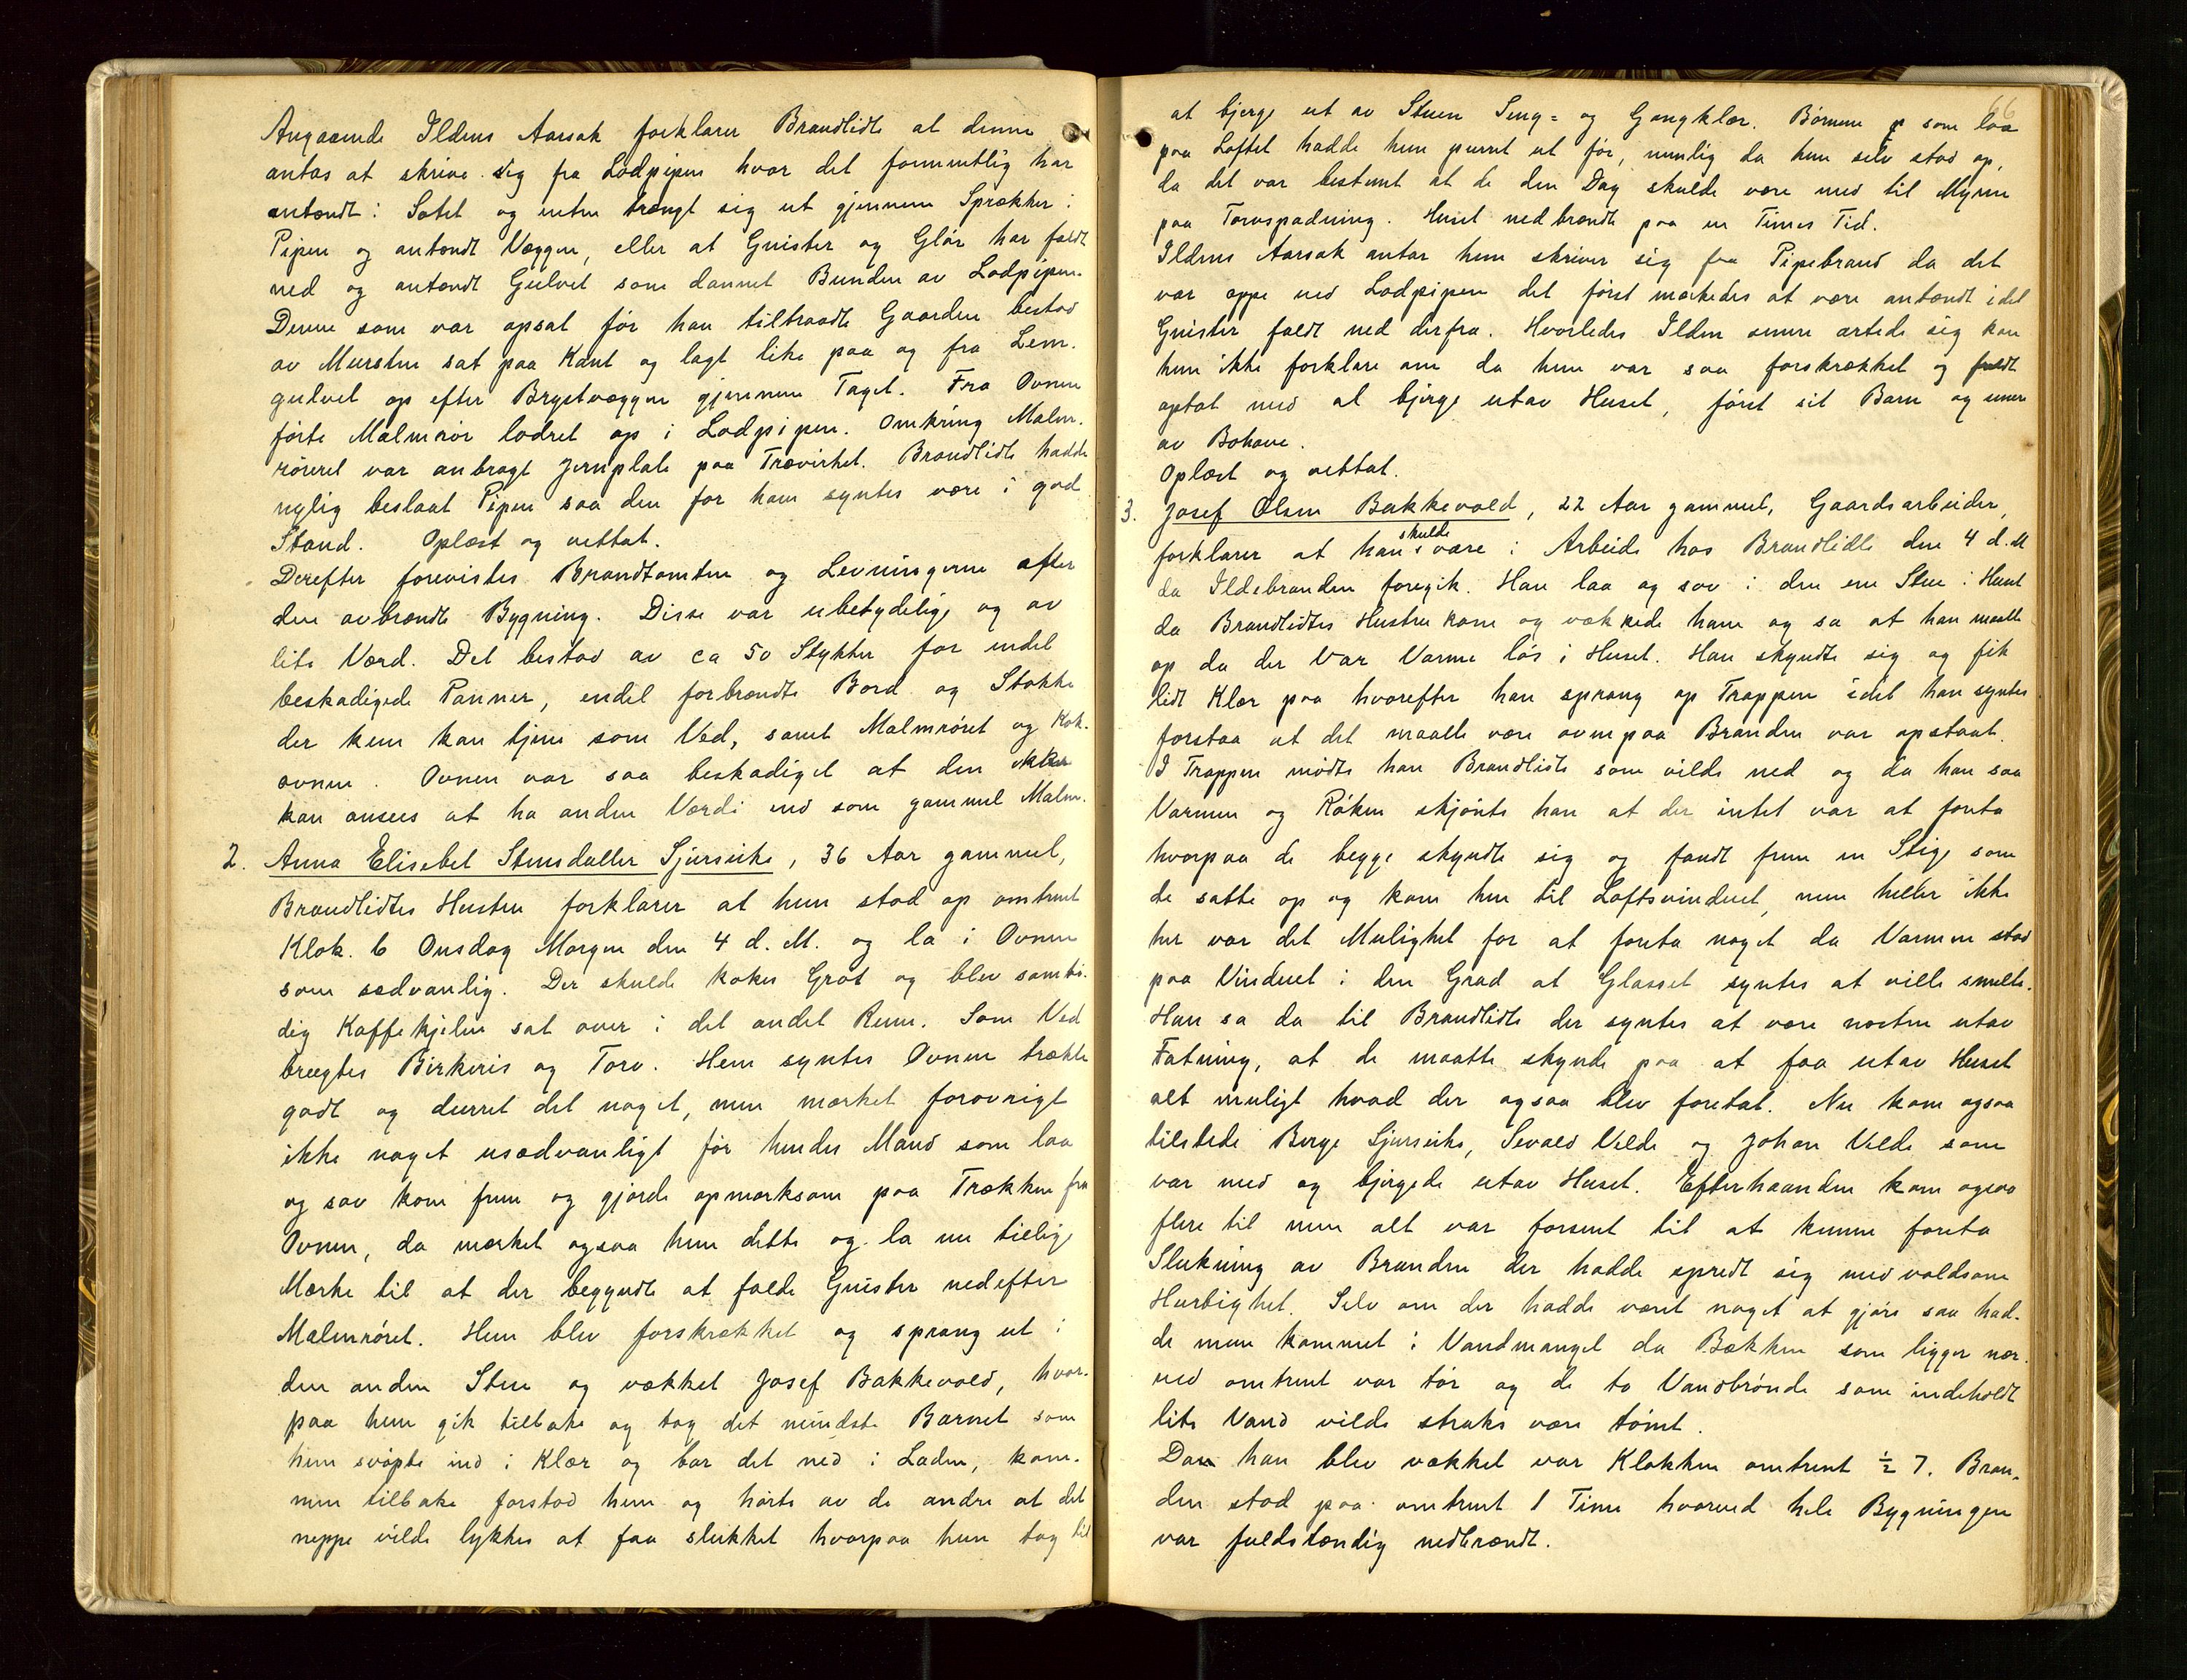 Angaaende Ildens Aarsak forklarer Brandlidte at denne
antas at skrive sig fra Lodpipen hvor det formentlig har
antændt i Sotet og enten trængt sig ut gjennem Sprækker i
Pipen og antændt Væggen, eller at Gnister og Glør har faldt
ned og antændt Gulvet som dannet Bunden av Lodpipen.
Denne som var opsat før han tiltraadte Gaarden bestod
av Mursten sat paa Kant og lagt like paa og fra Lem-
gulvet op efter Brystvæggen gjennem Taget. Fra Ovnen
førte Malmrør lodret op i Lodpipen. Omkring Malm-
røreret var anbragt Jernplate paa Trævirket. Brandlidte hadde
nylig beslaat Pipen saa den for ham syntes være i god
Stand. Oplæst og vettat.
Derefter forevistes Brandtomten og Levningerne efter
den avbrændte Bygning. Disse var ubetydelige og av
lite Værd. Det bestod av ca 50 Stykker for endel
beskadigede Panner, endel forbrændte Bord og Stokke
der kun kan tjene som Ved, samt Malmrøret og Kok-
ovnen. Ovnen var saa beskadiget at den ikke
kan ansees at ha anden Værdi end som gammel Malm.
2. Anna Elisabet Stensdatter Sjursvike, 36 Aar gammel,
Brandlidtes Hustru forklarer at hun stod op omtrent
Klok. 6 Onsdag Morgen den 4 d. M. og la i Ovnen
som sædvanlig. Der skulde kokes Grøt og blev samti-
dig Kaffekjelen sat over i det andet Rum. Som Ved
brugtes Birkeris og Torv. Hun syntes Ovnen trækte
godt og durret det noget, men mærket forøvrigt
ikke noget usædvanligt før hendes Mand som laa
og sov kom frem og gjorde opmerksom paa Trækken fra
Ovnen, da mærket ogsaa hun dette og la nu tielige
Mærke til at der begyndte at falde Gnister nedefter
Malmrøret. Hun blev forskrækket og sprang ut i
den anden Stue og vækket Josef Bakkevold, hvor-
paa hun gik tilbake og tog det mindste Barnet som
hun svøpte ind i Klær og bar det ned i Laden, kom-
men tilbake forstod hun og hørte av de andre at det
neppe vilde lykkes at faa slukket hvorpaa hun tog til
66
at bjerge ut av Stuen Seng= og Gangklær. Børnene som laa
paa Loftet hadde hun purret ut før, nemlig da hun selv stod op,
da det var bestemt at de den Dag skulde være med til Myren
paa Torvspadning. Huset nedbrændte paa en Times Tid.
Ildens Aarsak antar hun skriver sig fra Pipebrand da det
var oppe ved Lodpipen det først merkedes at være antændt idet
Gnister faldt ned derfra. Hvorledes Ilden senere artede sig kan
hun ikke forklare om da hun var saa forskrækket og fuldt
optat med at bjerge utav Huset, først sit Barn og senere
av Bohave.
Oplæst og vettat.
3. Josef Olsen Bakkevold, 22 Aar gammel, Gaardsarbeider,
skulde
forklarer at han være i Arbeide hos Brandlidte den 4 d. M
da Ildebranden foregik. Han laa og sov i den ene Stue i Huset
da Brandlidtes Hustru kom og vækkede ham og sa at han maatte
op da der var Varme løs i Huset. Han skyndte sig og fik
lidt Klær paa hvorefter han sprang op Trappen idet han syntes
forstaa at det maatte være ovenpaa Branden var opstaat.
I Trappen mødte han Brandlidte som vilde ned og da han saa
Varmen og Røken skjønte han at der intet var at foreta
hvorpaa de begge skyndte sig og fandt frem en Stige som
de satte op og kom hen til Loftsvinduet, men heller ikke
her var det Mulighet for at foreta noget da Varmen stod
paa Vinduet i den Grad at Glasset syntes at ville smelte.
Han sa da til Brandlidte der syntes at være næsten utav
Fatning, at de maatte skynde paa at faa utav Huset
alt muligt hvad der ogsaa blev foretat. Nu kom ogsaa
tilstede Berge Sjursvike, Sevald Velde og Johan Velde som
var med og bjergede utav Huset. Efterhaanden kom ogsaa
flere til men alt var forsent til at kunne foreta
Slukning av Branden der hadde spredt sig med voldsom
Hurtighet. Selv om der hadde været noget at gjøre saa had-
de man kommet i Vandmangel da Bækken som ligger nær
ved omtrent var tør og de to Vandbrønde som indeholdt
lite Vand vilde straks være tømt.
Da han blev vækket var Klokken omtrent ½ 7. Bran-
den stod paa omtrent 1 Time hvorved hele Bygningen
var fuldstændig nedbrændt.